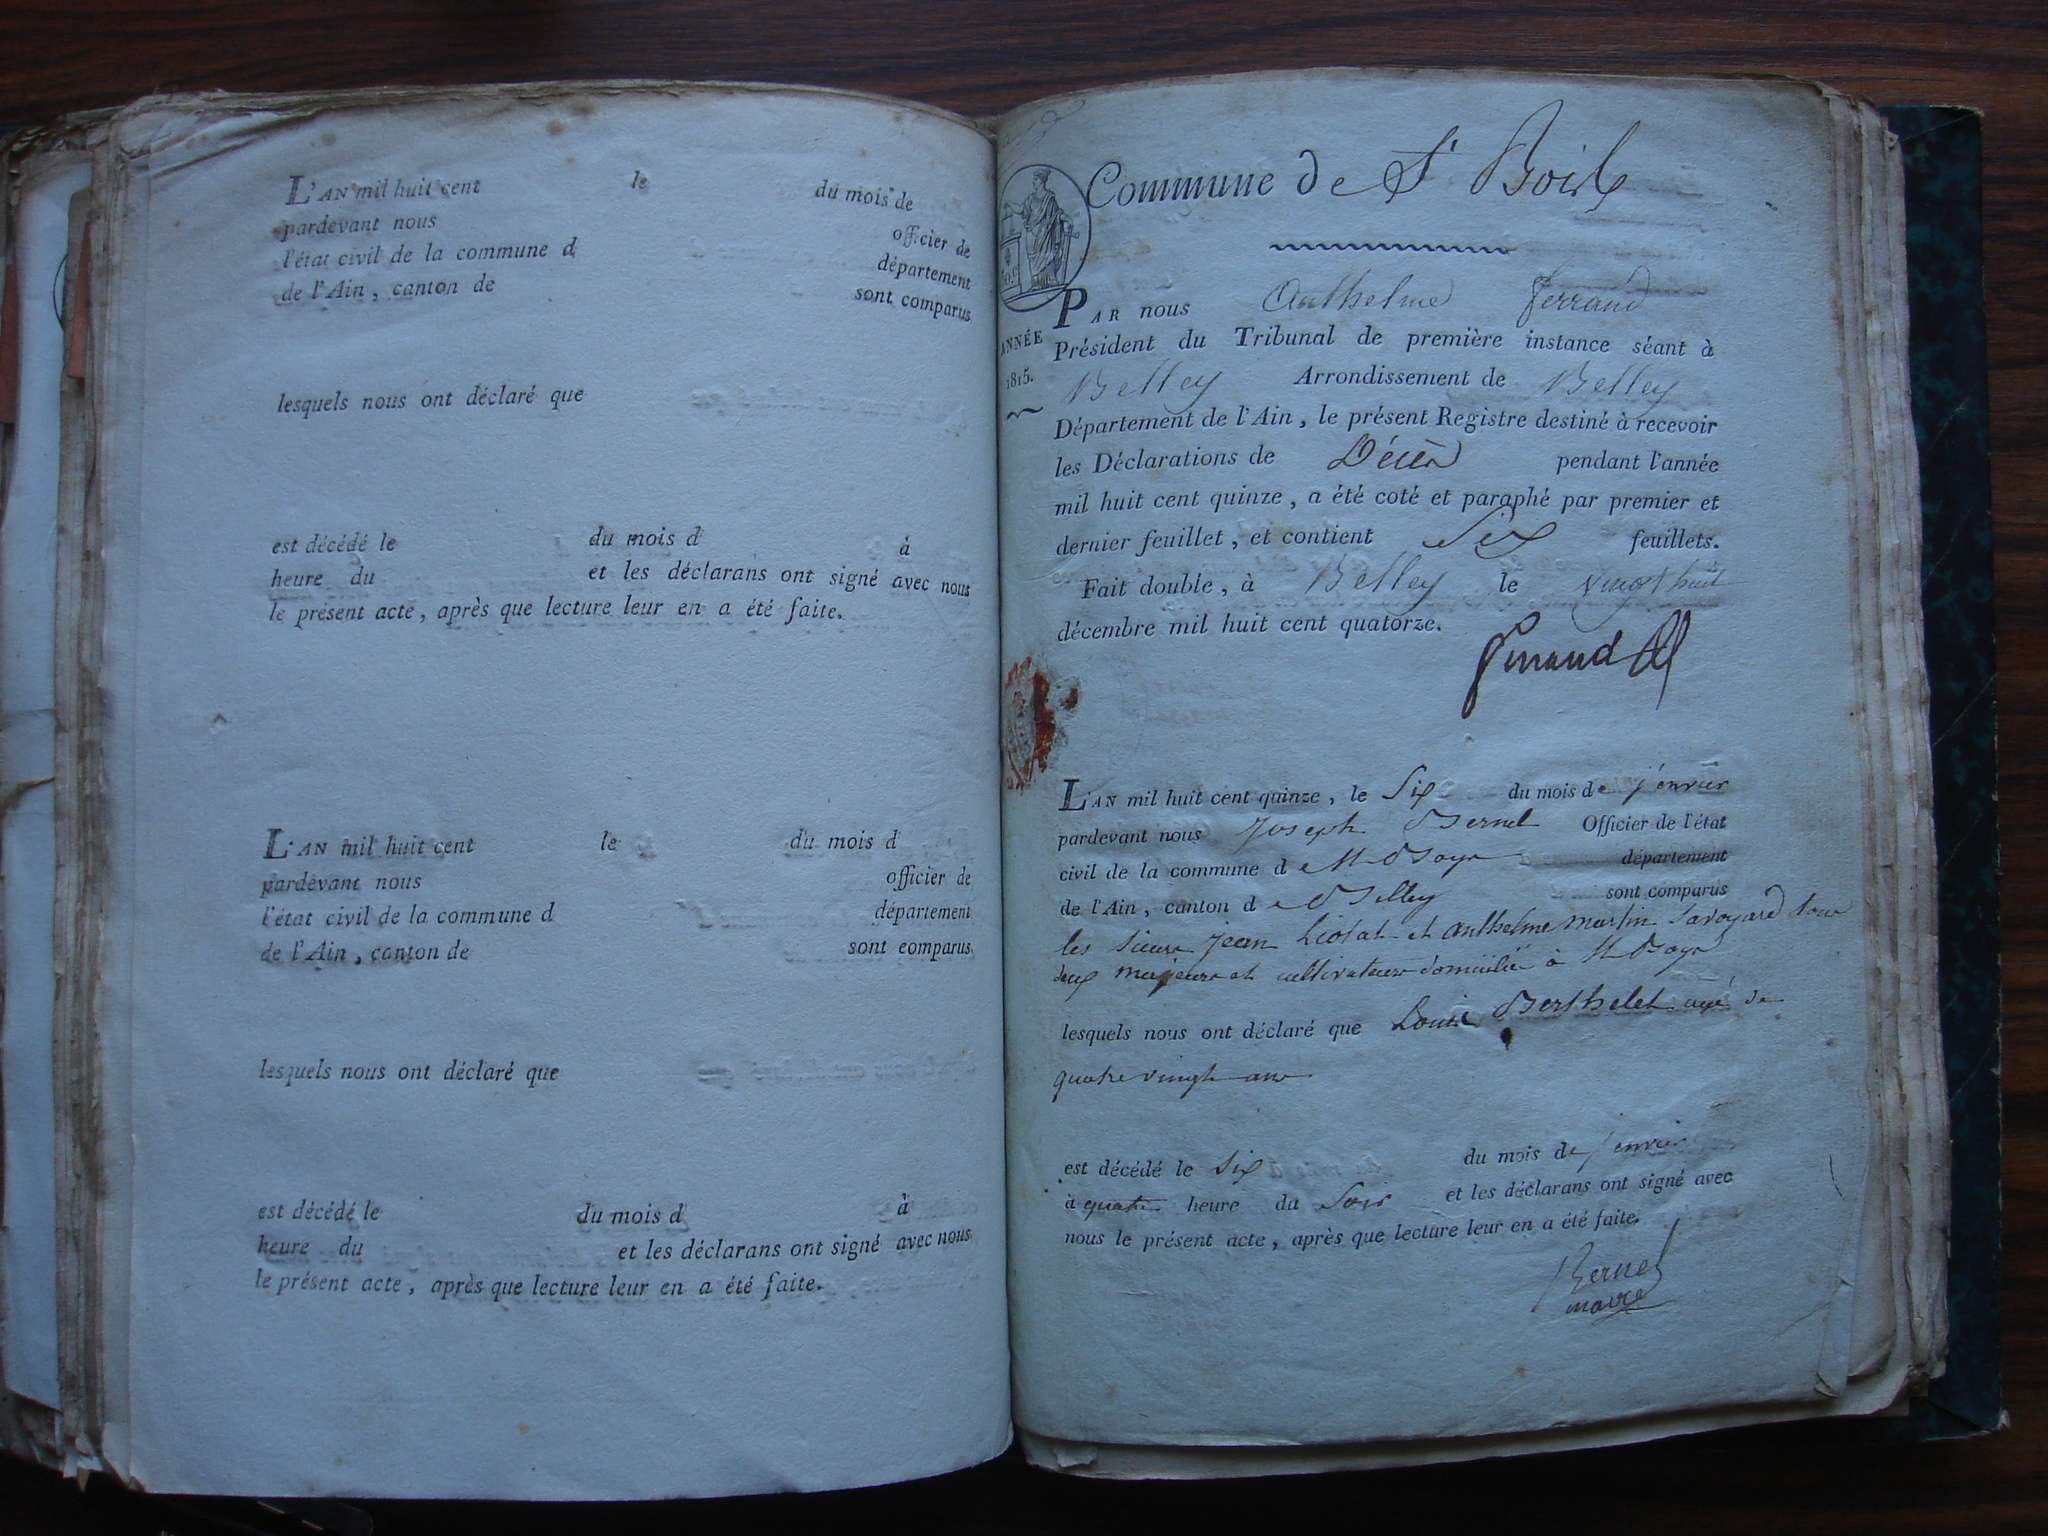 L'AN mil huit cent le du mois de
pardevant nous officier de
l'état civil de la commune d département
de l'Ain, canton de sont comparus
lesquels nous ont déclaré que
est décédé le du mois d à
heure du et les déclarans ont signé avec nous
le présent acte, après que lecture leur en a été faite.
L'AN mil huit cent le du mois d
pardevant nous officier de
l'état civil de la commune d département
de l'Ain, canton de sont comparus
lesquels nous ont déclaré que
est décédé le du mois d à
heure du et les déclarans ont signé avec nous
le présent acte, après que lecture leur en a été faite.
Commune de St Boi
ANNÉE
1815.
PAR nous Anthelme Ferrand
Président du Tribunal de première instance séant à
Belley Arrondissement de Belley
Département de l'Ain, le présent Registre destiné à recevoir
les Déclarations de Décès pendant l'année
mil huit cent quinze, a été coté et paraphé par premier et
dernier feuillet, et contient Six feuillets.
Fait double, à Belley le vingt huit
décembre mil huit cent quatorze.
Ferrand
L'AN mil huit cent quinze, le Six du mois de jenvier
pardevant nous Joseph Bernel Officier de l'état
civil de la commune de St Boys département
de l'Ain, canton de Belley sont comparus
les sieurs Jean Liotat et anthelme martin Savoyard tous
deux majeurs et cultivateurs domicilié à St Boys
lesquels nous ont déclaré que Louis Berthelet agé de
quatre vingt ans
est décédé le Six du mois de jenvier
à quatre heure du Soir et les déclarans ont signé avec
nous le présent acte, après que lecture leur en a été faite.
Bernel
maire